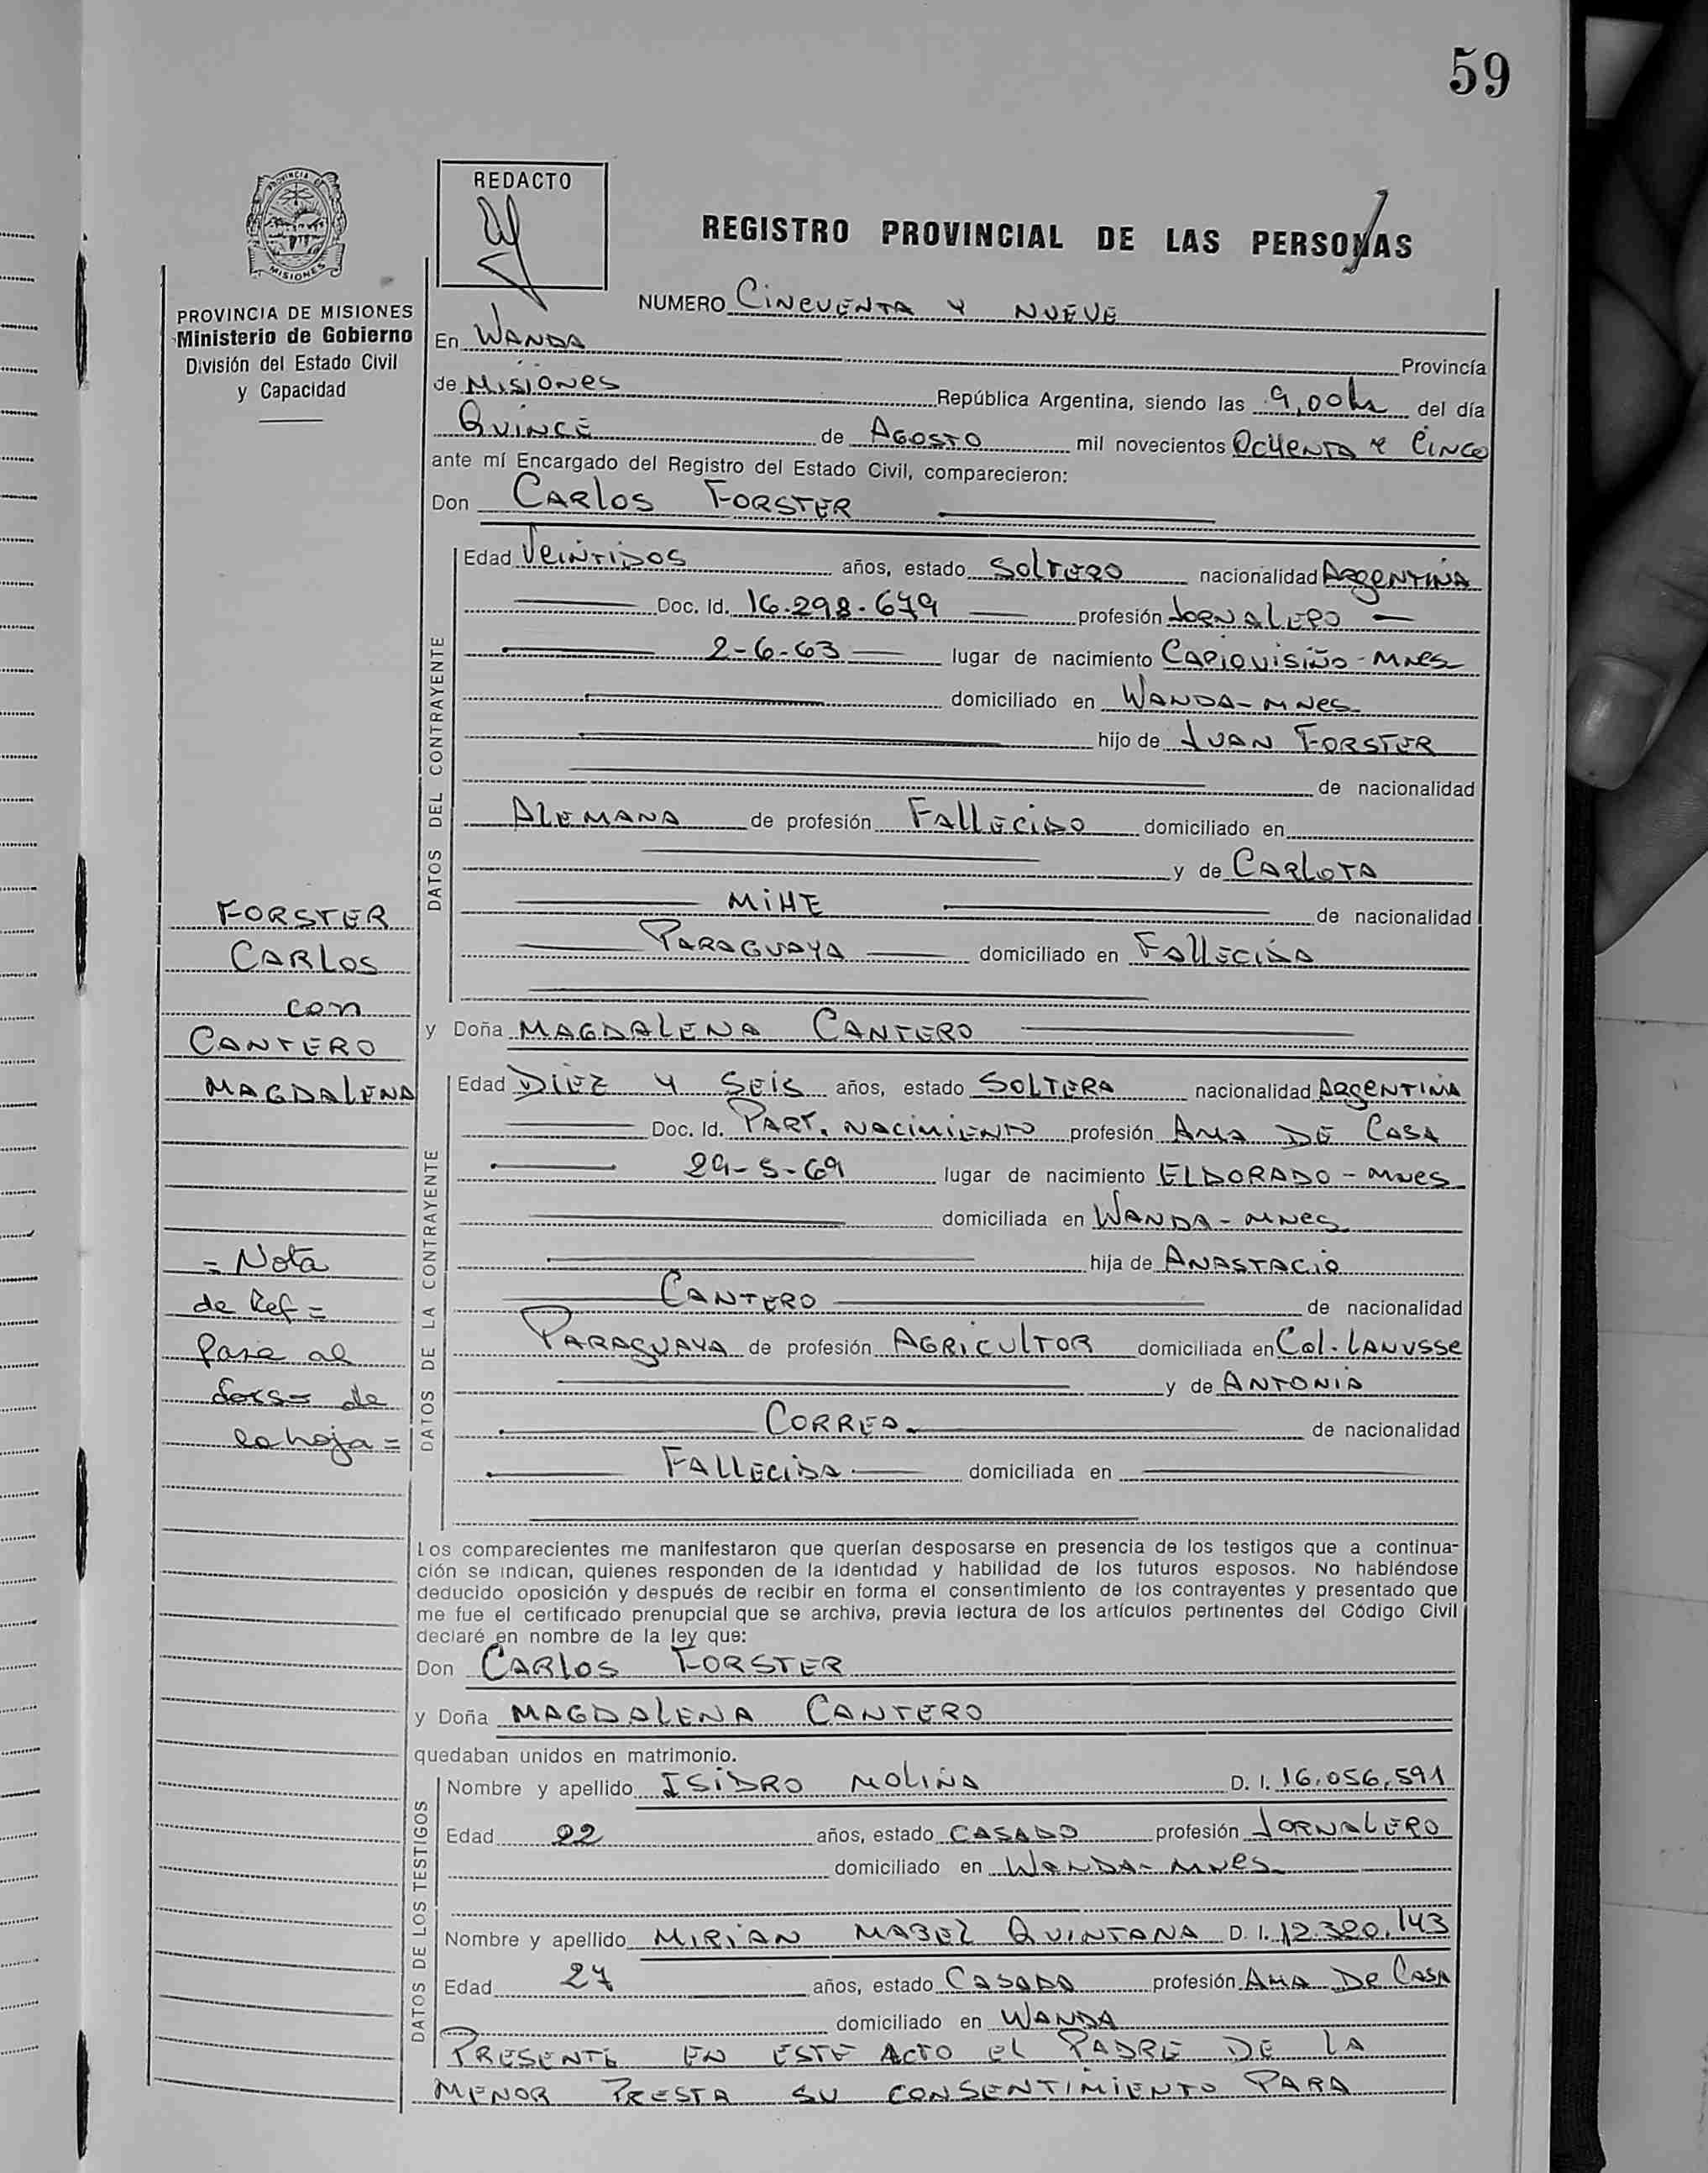 59
PROVINCIA DE
MISIONES
REDACTO
REGISTRO PROVINCIAL DE LAS PERSONAS
PROVINCIA DE MISIONES
Ministerio de Gobierno
División del Estado Civil
y Capacidad
NUMERO Cincuenta y nueve
En Wanda Provincia
de Misiones República Argentina, siendo las 9,00hs del día
Quince de Agosto mil novecientos Ochenta y Cinco
ante mí Encargado del Registro del Estado Civil, comparecieron:
Don Carlos Forster
DATOS DEL CONTRAYENTE
Edad Veintidos años, estado Soltero nacionalidad Argentina
Doc. Id. 16.298.679 profesión Jornalero
2-6-63 lugar de nacimiento Capiovisiño - Mnes
domiciliado en Wanda - Mnes
hijo de Juan Forster
de nacionalidad
Alemana de profesión Fallecido domiciliado en
y de Carlota
Mihe de nacionalidad
Paraguaya domiciliado en Fallecida
FORSTER
CARLOS
con
CANTERO
MAGDALENA
y Doña Magdalena Cantero
DATOS DE LA CONTRAYENTE
Edad Diez y Seis años, estado Soltera nacionalidad Argentina
Doc. Id. Part. Nacimiento profesión Ama de Casa
29-5-69 lugar de nacimiento Eldorado - Mnes
domiciliada en Wanda - Mnes
hija de Anastacio
Cantero de nacionalidad
Paraguaya de profesión Agricultor domiciliada en Col. Lanusse
y de Antonia
Correa de nacionalidad
Fallecida domiciliada en
= Nota
de Ref =
Pasa al
de
la hoja =
Los comparecientes me manifestaron que querían desposarse en presencia de los testigos que a continua-
ción se indican, quienes responden de la identidad y habilidad de los futuros esposos. No habiéndose
deducido oposición y después de recibir en forma el consentimiento de los contrayentes y presentado que
me fue el certificado prenupcial que se archiva, previa lectura de los artículos pertinentes del Código Civil
declaré en nombre de la ley que:
Don Carlos Forster
y Doña Magdalena Cantero
quedaban unidos en matrimonio.
DATOS DE LOS TESTIGOS
Nombre y apellido Isidro Molina D. I. 16.056.591
Edad 22 años, estado Casado profesión Jornalero
domiciliado en Wanda - Mnes
Nombre y apellido Mirian Mabel Quintana D. I. 12.320.143
Edad 27 años, estado Casada profesión Ama De Casa
domiciliado en Wanda
Presente en este acto el Padre de la
menor Presta su consentimiento para